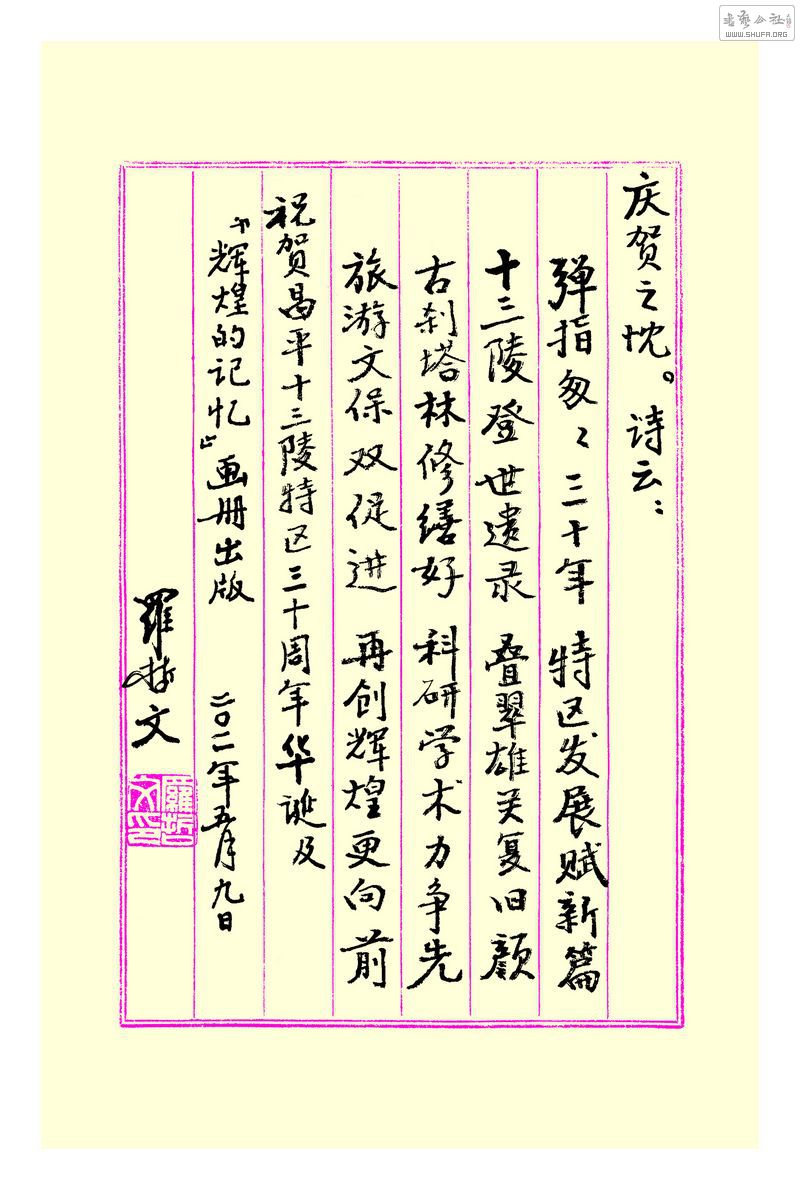 庆贺之忱。诗云：
弹指匆々三十年 特区发展赋新篇
十三陵登世遗录 叠翠雄关复旧颜
古刹塔林修缮好 科研学术力争先
旅游文保双促进 再创辉煌更向前
祝贺昌平十三陵特区三十周年华诞及
『辉煌的记忆』画册出版 二〇一一年五月九日
羅哲文
羅哲文印
書藝公社
WWW.SHUFA.ORG